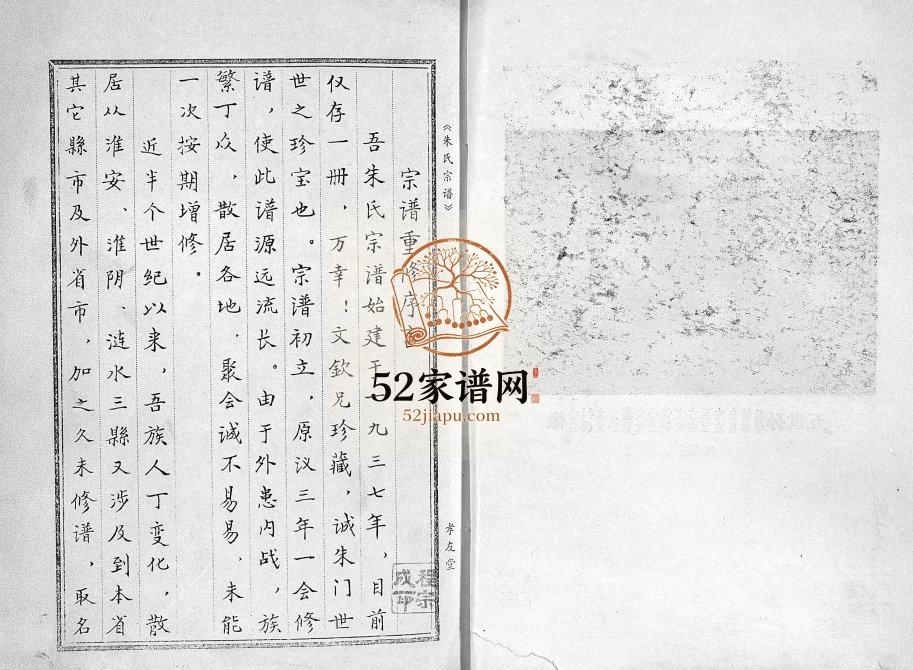 《朱氏宗谱》
孝友堂
宗谱重修序言
吾朱氏宗谱始建于一九三七年，目前
仅存一册，万幸！文钦兄珍藏，诚朱门世
世之珍宝也。宗谱初立，原议三年一会修
谱，使此谱源远流长。由于外患内战，族
繁丁众，散居各地，聚会诚不易易，未能
一次按期增修。
近半个世纪以来，吾族人丁变化，散
居从淮安、淮阴、涟水三縣又涉及到本省
其它縣市及外省市，加之久未修谱，取名
52家谱网
52jiapu.com